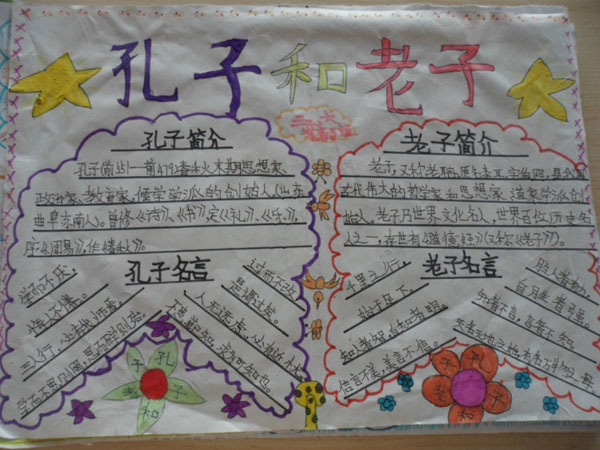 孔子和老子
孔子简介
孔子(前551—前479)春秋末期思想家、
政治家、教育家,儒学学派的创始人(山东
曲阜东南人)。曾修《诗》、《书》,定《礼》、《乐》,
序《周易》,作《春秋》。
孔子名言
学而不厌,
诲人不倦。
三人行,必有我师焉。
学而不思则罔,思而不学则殆。
过而不改,
是谓过矣。
人无远虑,必有近忧
不患人不知,求为可知也。
老子简介
老子,又称老聃,
古代伟大的哲学家和思想家、道家学派创
始人,老子乃世界文化名人,世界百位历史名
人之一,存世有《道德经》(又称《老子》)。
老子名言
千里之行,
始于足下。
知人者智,自知者明。
信言不美,美言不信。
胜人者有力,
自胜者强。
知者不言,言者不知。
孔
子
和
老
子